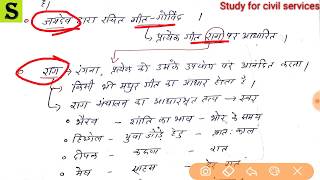 S
Study for civil services
है।
जयदेव द्वारा रचित गीत-गोविन्द।
प्रत्येक गीत राग पर आधारित।
राग → रंगना, प्रत्येक को उसके उपयोग पर आधारित करता।
किसी भी मधुर गीत का आधार होता है।
राग संचालन का आधारभूत तत्व → स्वर
भैरव – शांति का भाव – भोर के समय
हिण्डोल – युवा जोड़े हेतु – प्रातः काल
दीपक – करुणा – रात
मेघ – साहस –